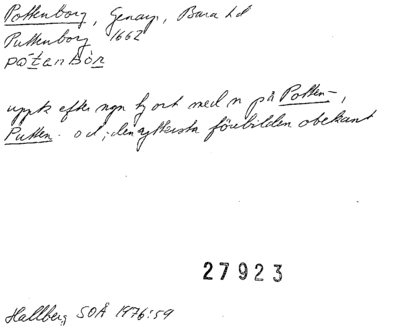 Pottenborg, Genarp, Bara hd
Puttenborg 1662
påtanbòr
uppk efter ngn fjort med n på Potten-,
Putten- od; den yttersta förebilden obekant
27923
Hallberg SOÅ 1976:59